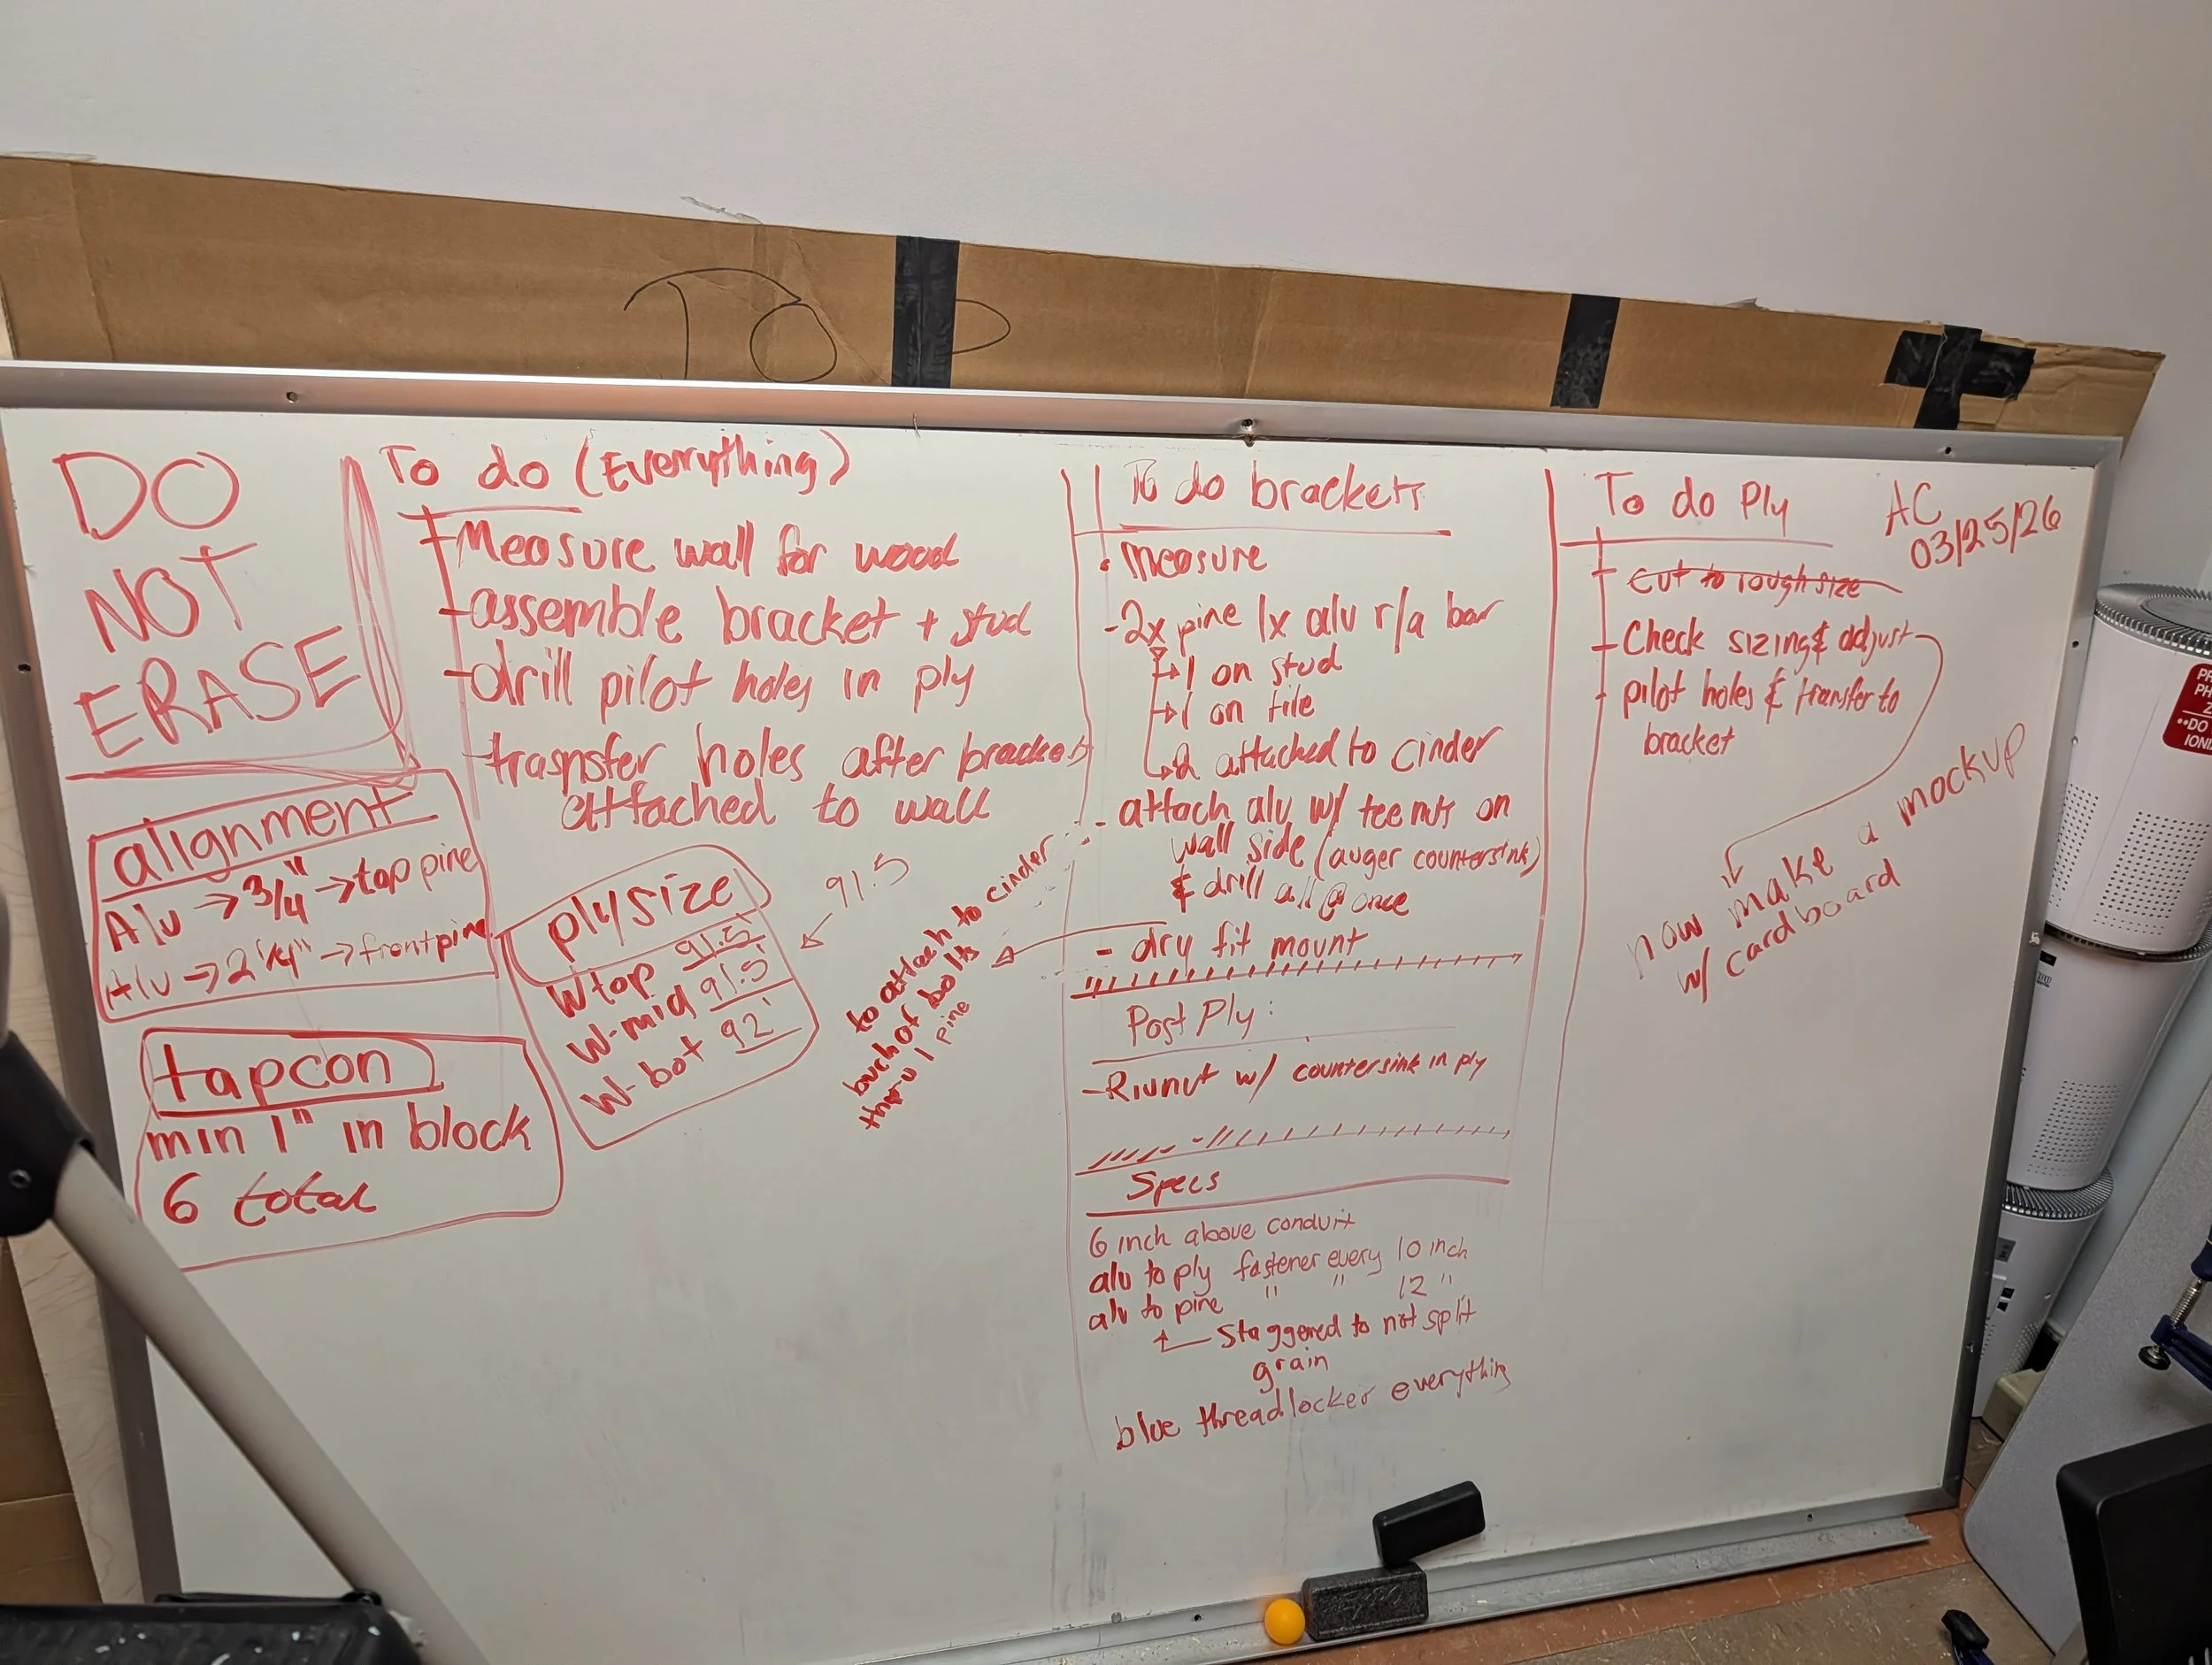 TOP
DO
NOT
ERASE
To do (Everything)
-Measure wall for wood
-assemble bracket + stud
-drill pilot holes in ply
-trasnsfer holes after brackets
attached to wall
alignment
Alu → 3/4" → top pine
Alu → 2 1/4" → front pine
tapcon
min 1" in block
6 total
ply size
W top 91.5
W-mid 91.5
W-bot 92
91.5
to attach to cinder
buch of bolts
thru 1 pine
To do brackets
• Measure
- 2x pine 1x alu r/a bar
→ 1 on stud
→ 1 on tile
→ 2 attached to cinder
- attach alu w/ tee nuts on
wall side (auger countersink)
& drill all @ once
- dry fit mount
Post Ply:
- Rivnut w/ countersink in ply
Specs
6 inch above conduit
alu to ply fastener every 10 inch
alu to pine " " 12 "
Staggered to not split
grain
blue threadlocker everything
To do Ply
AC
03/25/26
- cut to rough size
- Check sizing & adjust
- pilot holes & transfer to
bracket
now make a mockup
w/ cardboard